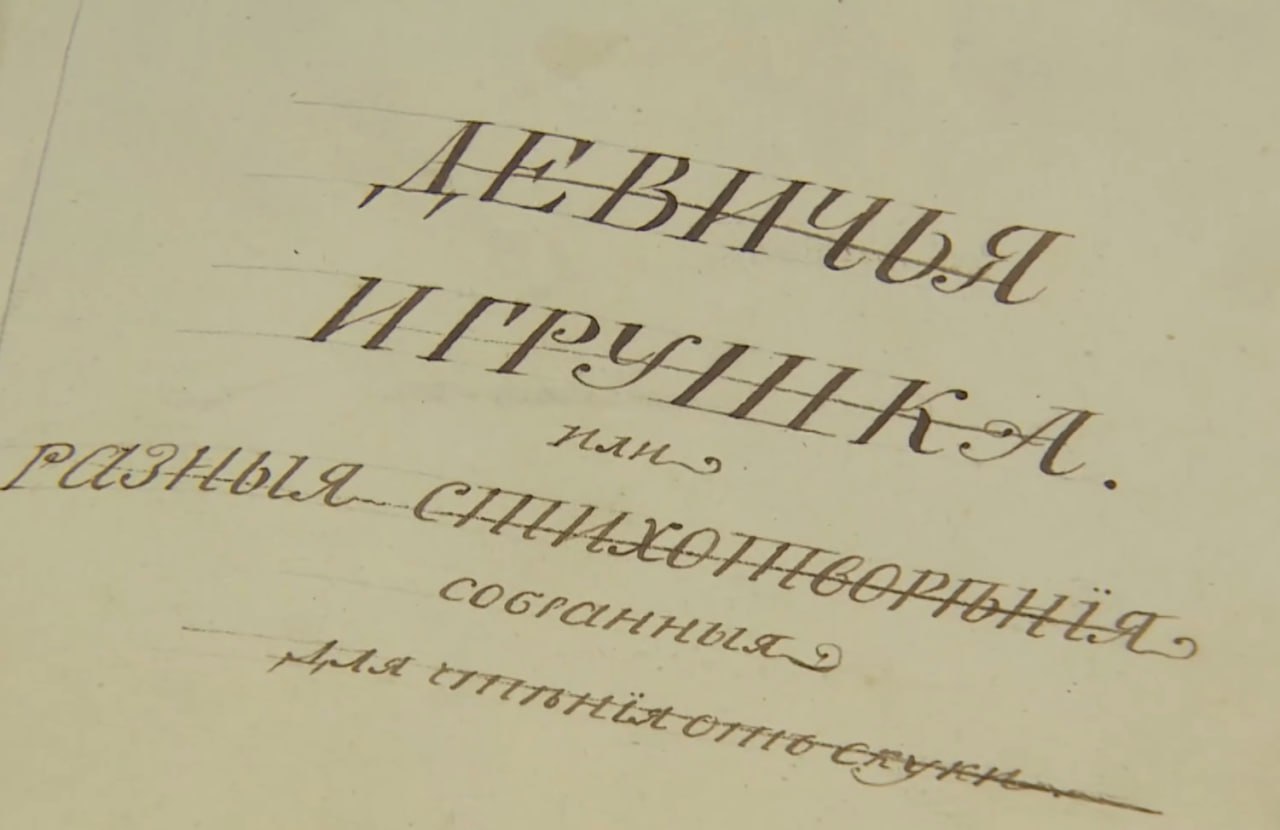 ДЕВИЧЬЯ
ИГРУШКА.
или
РАЗНЫЯ СТИХОТВОРѢНІЯ
собранныя
для чтѣнія отъ скуки